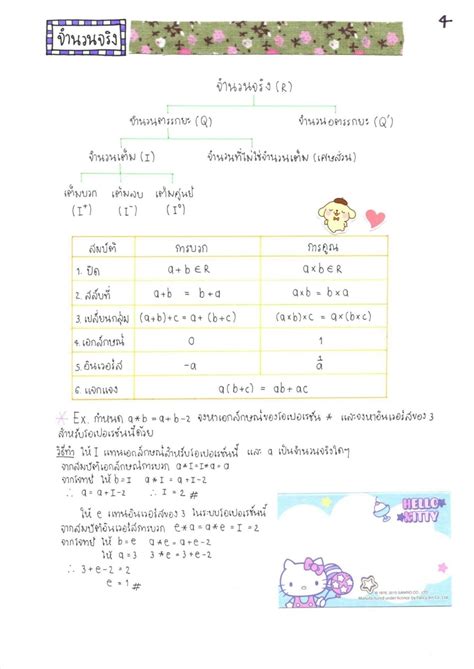 4
จำนวนจริง
จำนวนจริง (R)
จำนวนตรรกยะ (Q) จำนวนอตรรกยะ (Q')
จำนวนเต็ม (I) จำนวนที่ไม่ใช่จำนวนเต็ม (เศษส่วน)
เต็มบวก เต็มลบ เต็มศูนย์
(I⁺) (I⁻) (I⁰)
สมบัติ การบวก การคูณ
1. ปิด a+b ∈ R a×b ∈ R
2. สลับที่ a+b = b+a a×b = b×a
3. เปลี่ยนกลุ่ม (a+b)+c = a+(b+c) (a×b)×c = a×(b×c)
4. เอกลักษณ์ 0 1
5. อินเวอร์ส -a 1/a
6. แจกแจง a(b+c) = ab+ac
* Ex. กำหนด a*b = a+b-2 จงหาเอกลักษณ์ของโอเปอเรชัน * และจงหาอินเวอร์สของ 3
สำหรับโอเปอเรชันนี้ด้วย
วิธีทำ ให้ I แทนเอกลักษณ์สำหรับโอเปอเรชันนี้ และ a เป็นจำนวนจริงใดๆ
จากสมบัติเอกลักษณ์การบวก a*I=I*a=a
จากโจทย์ ให้ b=I a*I = a+I-2
∴ a = a+I-2 ∴ I = 2 #
ให้ e แทนอินเวอร์สของ 3 ในระบบโอเปอเรชันนี้
จากสมบัติอินเวอร์สการบวก e*a = a*e = I = 2
จากโจทย์ ให้ b=e a*e = a+e-2
ให้ a=3 3*e = 3+e-2
∴ 3+e-2 = 2
e = 1 #
HELLO
KITTY